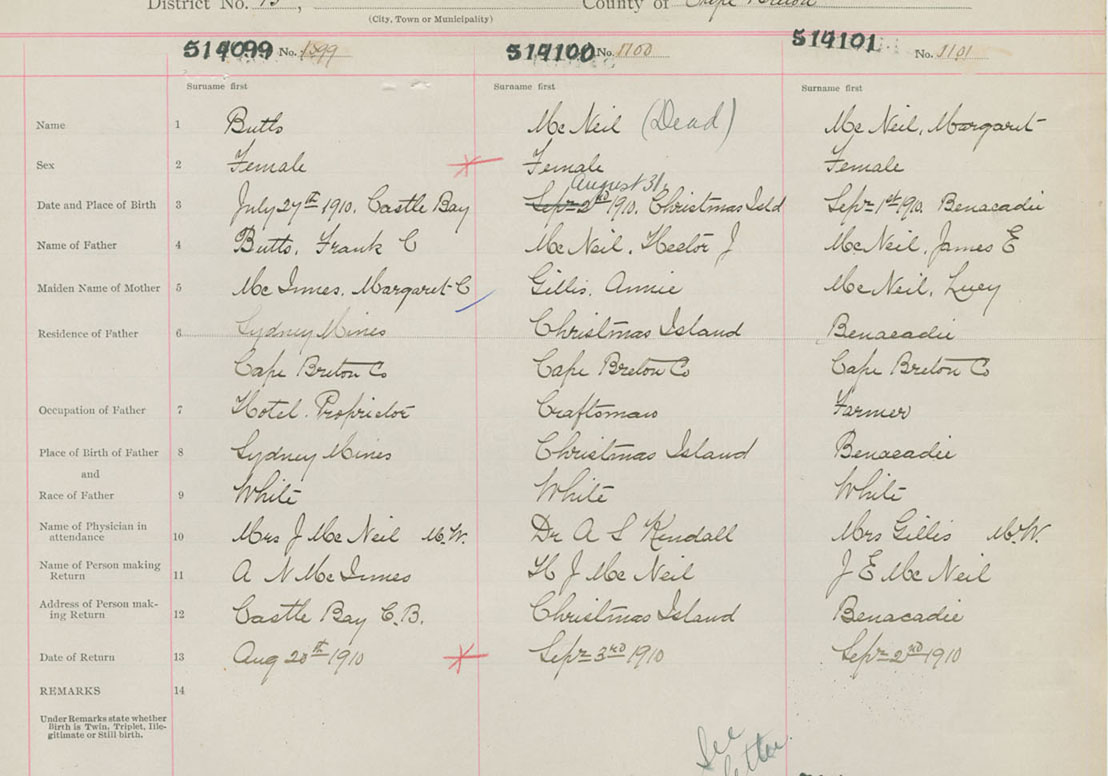 District No. 13, County of Cape Breton
(City, Town or Municipality)
514099 No. 1099 514100 No. 1100 514101 No. 1101
Surname first Surname first Surname first
Name 1 Butts Mc Neil (Dead) Mc Neil, Margaret
Sex 2 Female Female Female
August 31
Date and Place of Birth 3 July 27th 1910, Castle Bay Sepr 2nd 1910, Christmas Isld Sepr 1st 190, Benacadie
Name of Father 4 Butts, Frank C Mc Neil, Hector J Mc Neil, James E
Maiden Name of Mother 5 Mc Innes, Margaret C Gillis, Annie Mc Neil, Lucy
Residence of Father 6 Sydney Mines Christmas Island Benacadie
Cape Breton Co Cape Breton Co Cape Breton Co
Occupation of Father 7 Hotel Proprietor Craftsman Farmer
Place of Birth of Father 8 Sydney Mines Christmas Island Benacadie
and
Race of Father 9 White White White
Name of Physician in
attendance 10 Mrs J Mc Neil M.W. Dr A S Kendall Mrs Gillis M.W.
Name of Person making
Return 11 A N Mc Innes H J Mc Neil J E Mc Neil
Address of Person mak-
ing Return 12 Castle Bay C.B. Christmas Island Benacadie
Date of Return 13 Aug 20th 1910 Sepr 3rd 1910 Sepr 2nd 1910
REMARKS 14
Under Remarks state whether
Birth is Twin, Triplet, Ille-
gitimate or Still birth.
See
letter.